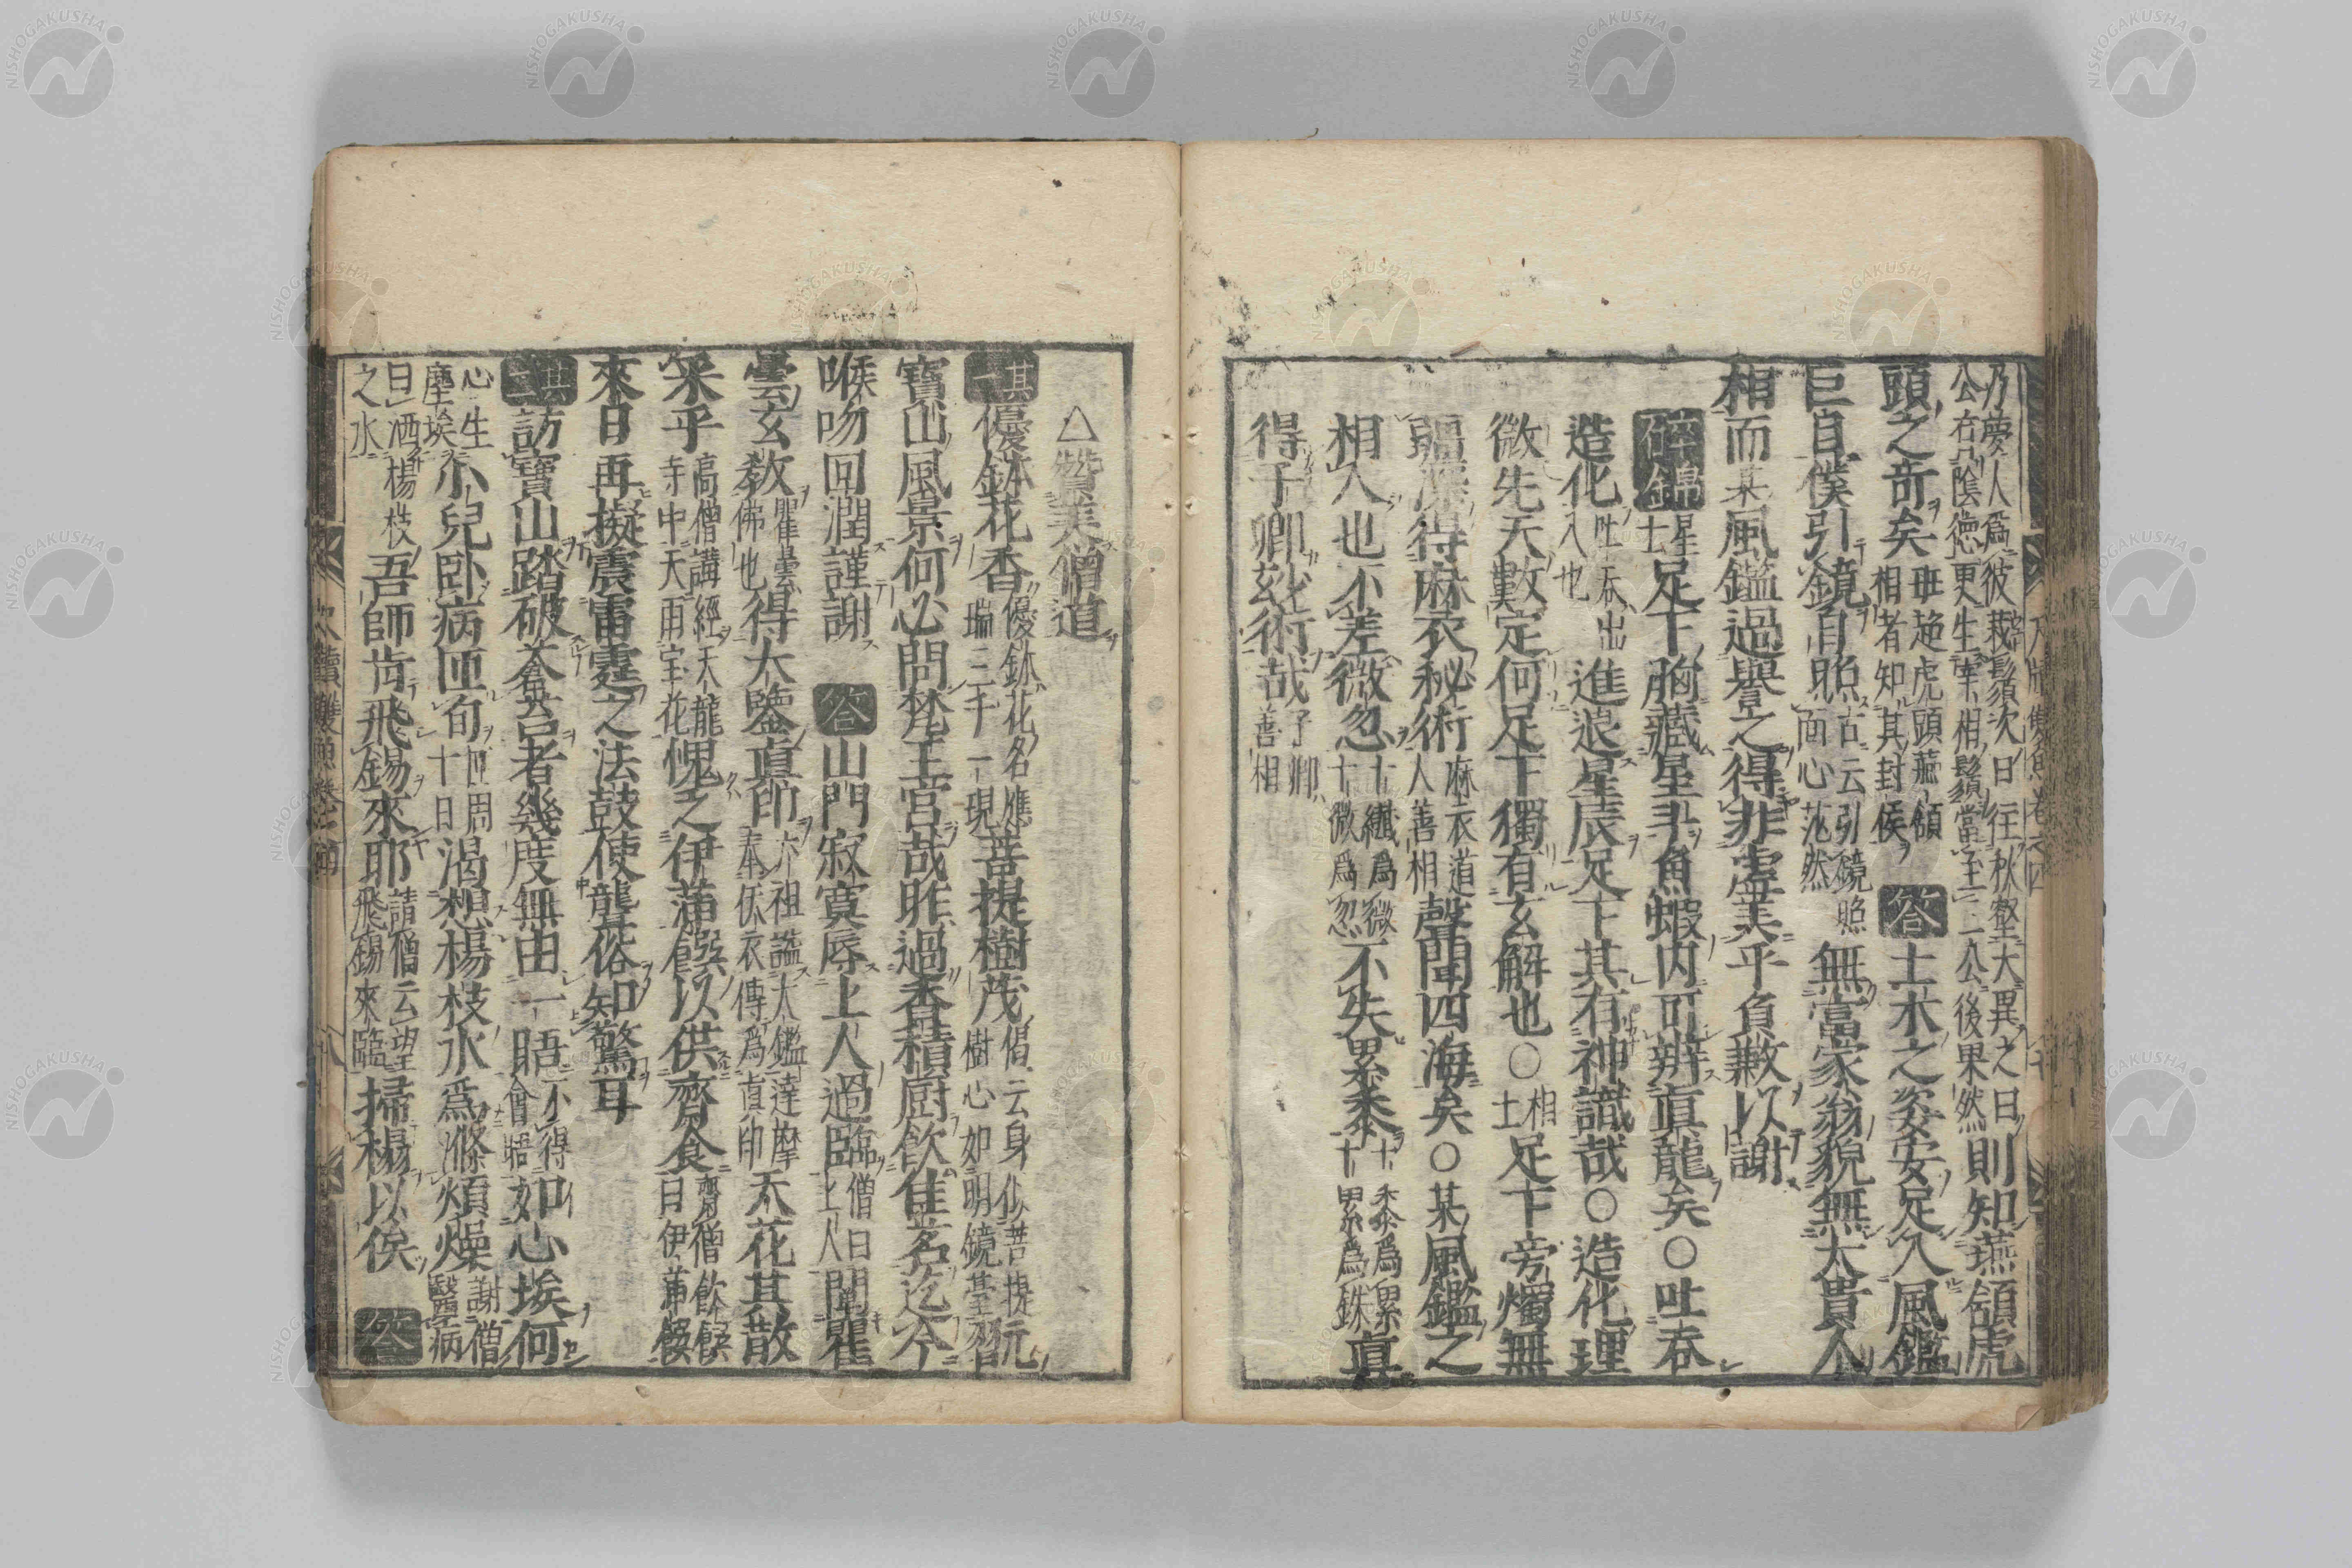 乃夢人爲彼栽鬚次日往秋壑大異之曰
公有陰德更生宰相鬚當至二公後果然則知燕頷虎
頭之奇矣班超虎頭燕頷
相者知其封侯答土木之姿安足入風鑑
巨目僕引鏡自照古云引鏡照
面心茫然無富家翁貌無大貴人
相而某風鑑過譽之得非虛美乎負歉以謝
碎錦星士足下胸藏星斗魚蝦內可辨真龍矣○吐吞
造化吐吞出
入也進退星辰足下其有神識哉○造化理
微先天數定何足下獨有玄解也○相士足下旁燭無
疆深得麻衣秘術麻衣道
人善相聲聞四海矣○某風鑑之
相人也不差微忽十纖爲微
十微爲忽不失累黍十黍爲累
十累爲銖真
得子卿玄術哉子卿
善相
△贊美僧道
其一優鉢花香優鉢花名應
瑞三千一現菩提樹茂偈云身似菩提元
樹心如明鏡基智
寶山風景何必問梵王宮哉昨過香積廚飲佳茗迄今
喉吻回潤謹謝答山門寂寞辱上人過臨僧曰
上人聞瞿
曇玄教瞿曇
佛也得大鑒真印六祖謚大鑑達摩
奉伝衣傳爲真印天花其散
采乎高僧講經天龍
寺中天雨宝花愧乏伊蒲饌以供齋食齋僧飲饌
目伊蒲饌
來日再擬震雷霆之法鼓使聾俗知驚耳
其二訪寶山踏破蒼苔者幾度無由一晤不得
會晤如心埃何
心生
塵埃小兒臥病匝旬匝周
十日渴想楊枝水爲滌煩燥謝僧
醫病
曰洒楊枝
之水吾師肯飛錫來耶請僧云望
飛錫來臨掃榻以俟答
尺牘雙魚卷之四
尺牘雙魚卷之四
十八
NISHOGAKUSHA